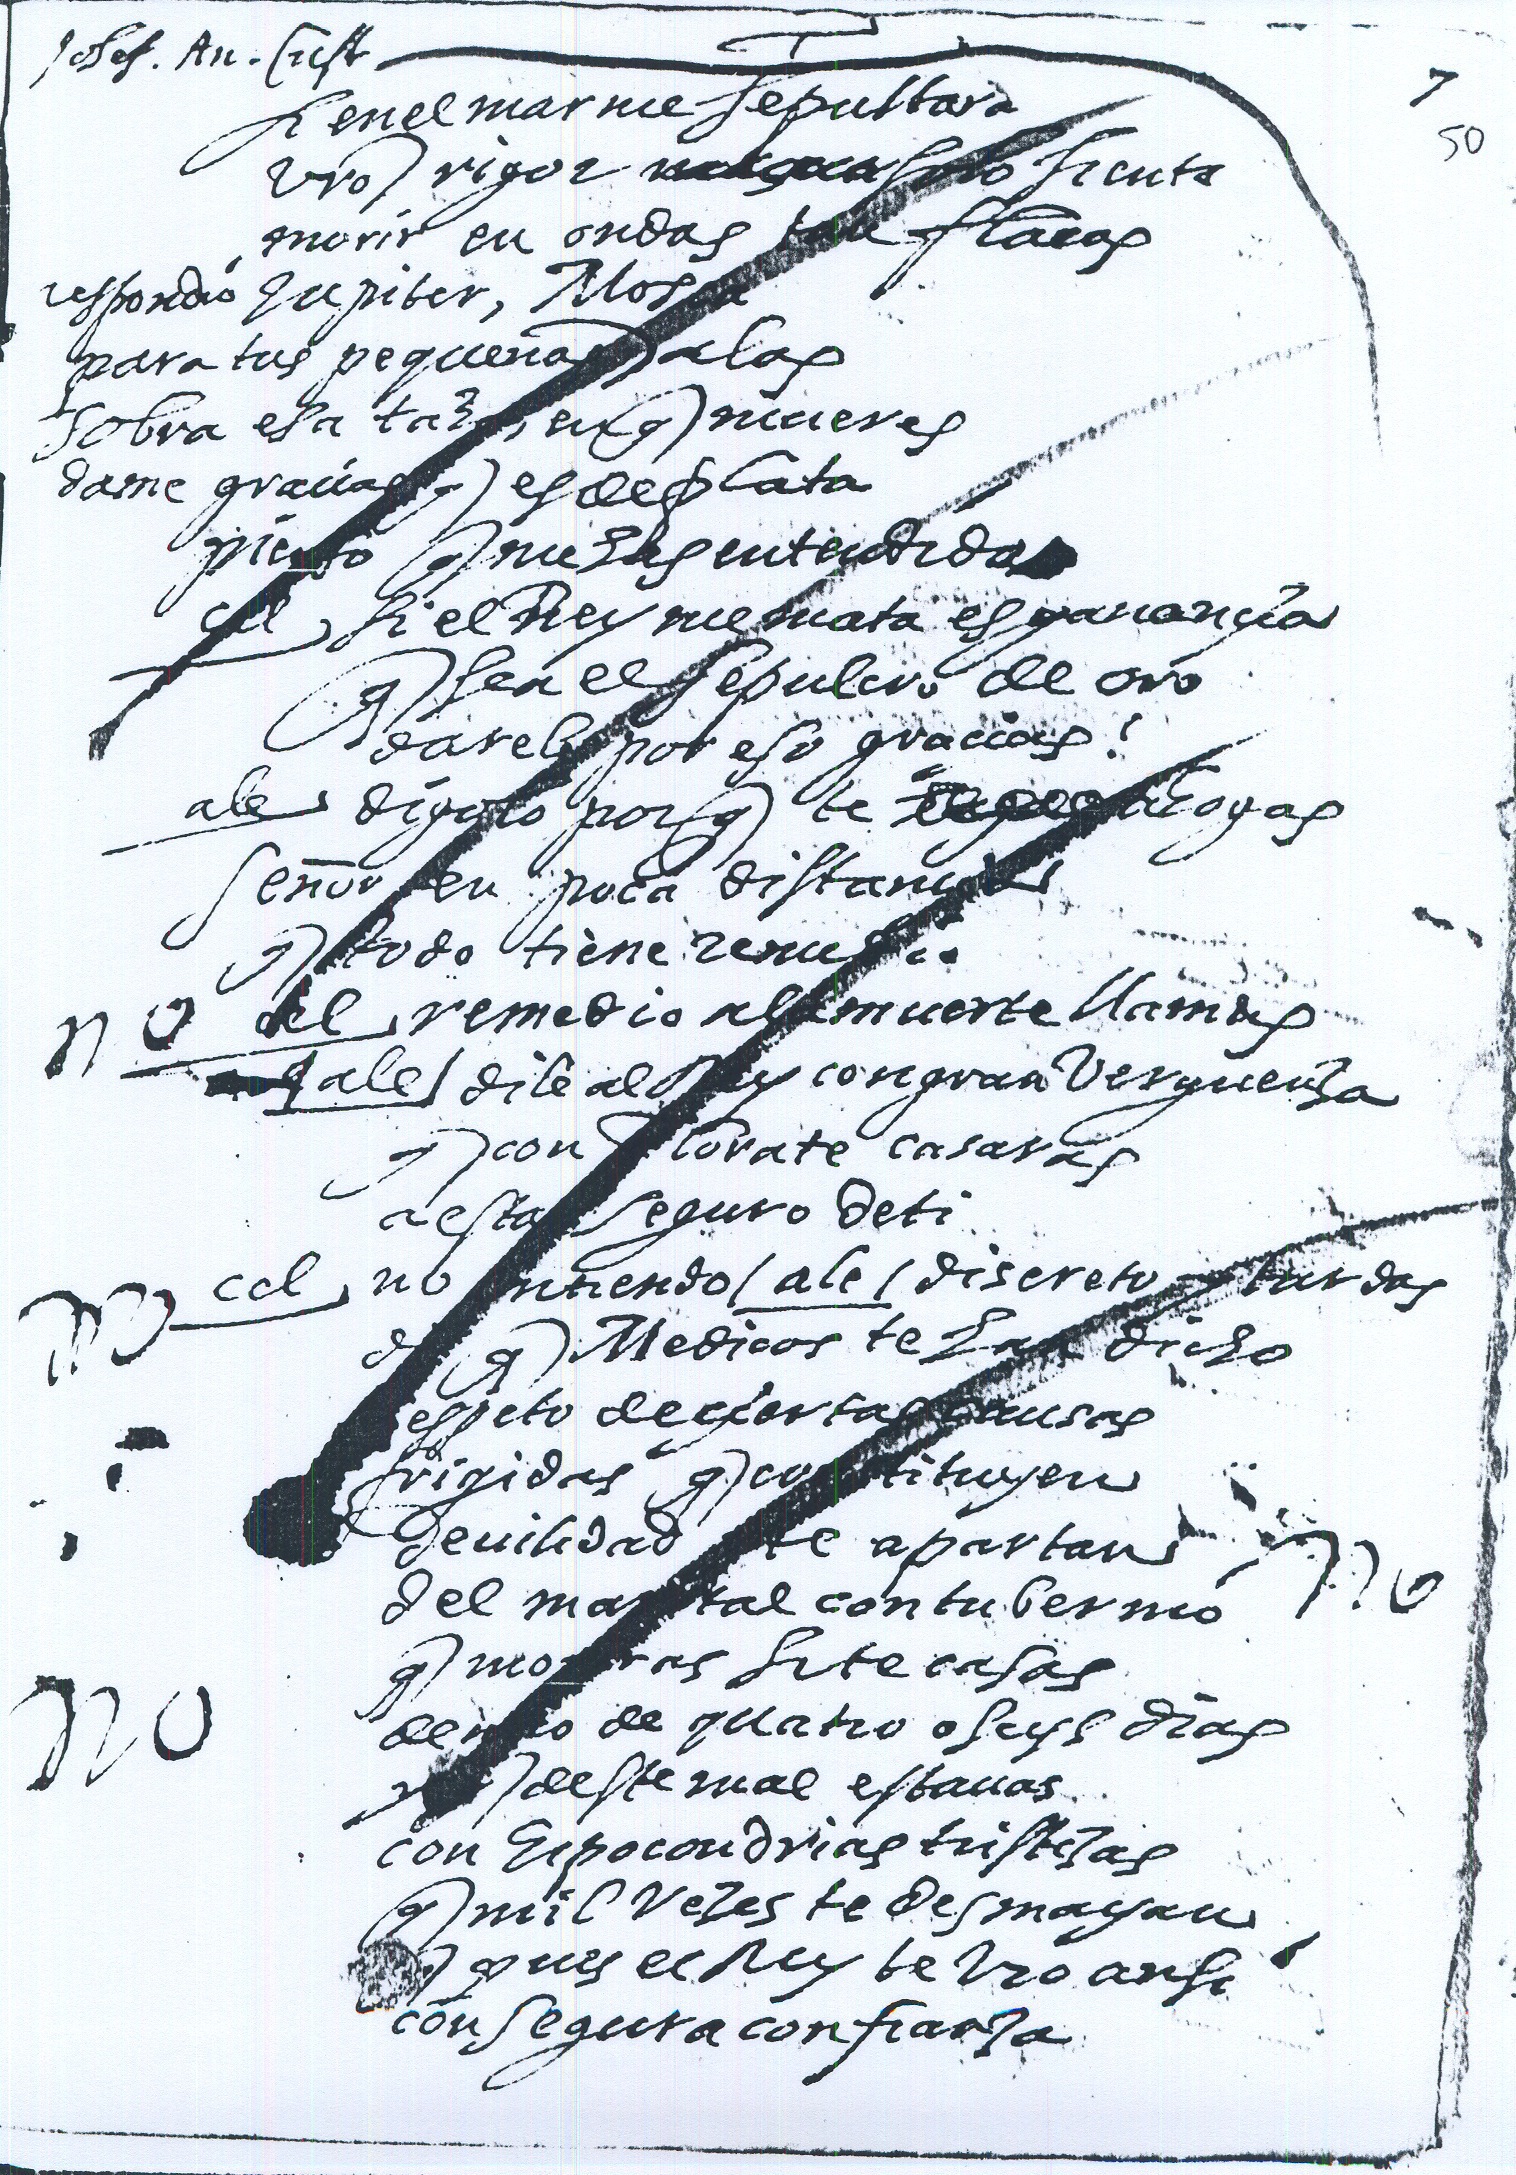 Josef. An. Crist
7
50
si en el mar me sepultara
vro rigor solo siento
morir en ondas tan flacas
respondio Jupiter, Mosca
para tus pequeñas alas
sobra esa taza, en q mueres
dame gracias q es de plata
pienso q me has entendido
cel si el Rey me mata es ganancia
q sea el sepulcro de oro
darele por eso gracias!
ale digolo por q te acogas
señor en poca distancia
q todo tiene remedio
no cel remedio a la muerte llamas
ale dile al Rey con gran verguenza
q con Flora te casaras
a estar seguro de ti
no cel no entiendo / ale / discreto tardas
di q Medicos te han dicho
respeto de ciertas causas
frigidas q constituyen
deuilidad te apartan
del marital contubernio no
q moriras si te casas
no dentro de quatro o seys dias
q deste mal estauas
con hipocondrias tristezas
q mil vezes te desmayan
q pues el Rey te vio ansi
con segura confianza